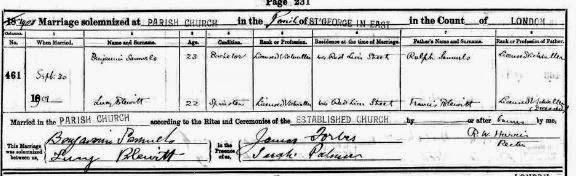 Page 231
1919 Marriage solemnized at PARISH CHURCH in the Parish of ST GEORGE IN EAST in the County of LONDON
No. When Married. Name and Surname. Age. Condition. Rank or Profession. Residence at the time of Marriage. Father's Name and Surname. Rank or Profession of Father.
461 Sept. 20 Benjamin Samuels 23 Bachelor Licensed Victualler Red Lion Street Ralph Samuels Licensed Victualler
Lucy Blewitt 22 Spinster Licensed Victualler Red Lion Street Francis Blewitt Licensed Victualler (deceased)
Married in the PARISH CHURCH according to the Rites and Ceremonies of the ESTABLISHED CHURCH by or after Banns by me,
This Marriage was solemnized between us,
Benjamin Samuels
Lucy Blewitt
in the Presence of us,
James Forbes
Palmer
R. W. Harris
Rector